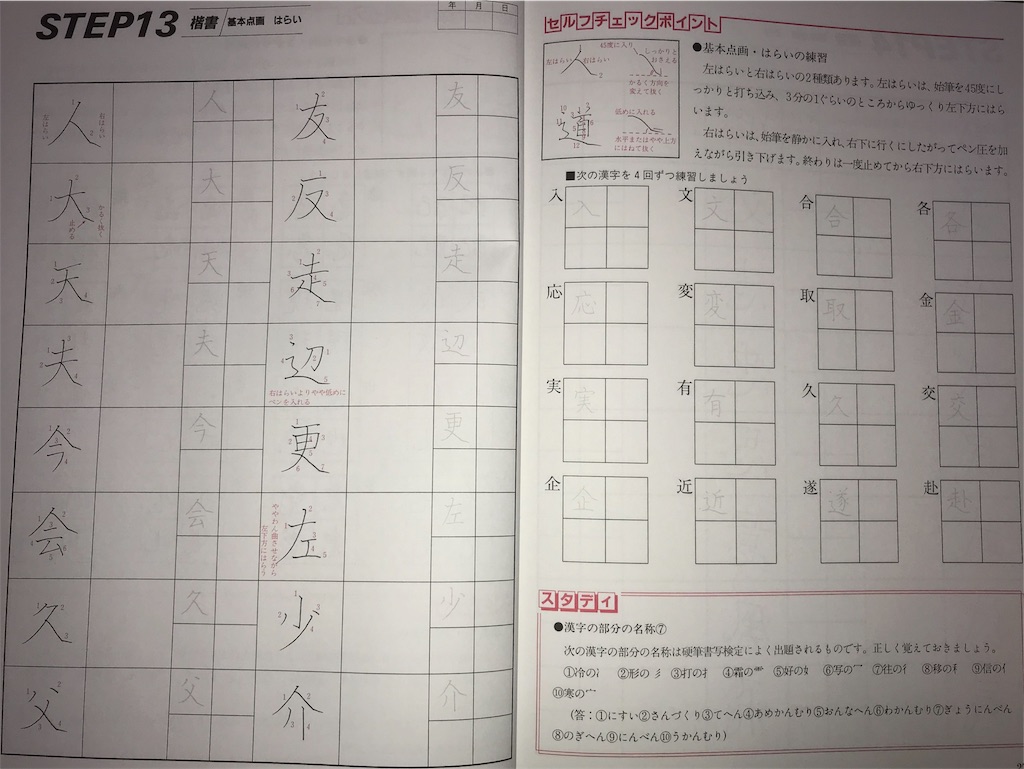 STEP13 楷書 基本点画 はらい
年 月 日
人 人 友 友
左はらい
右はらい
大 大 反 反
かるく抜く
止める
天 天 走 走
夫 夫 辺 辺
右はらいよりやや低めに
ペンを入れる
今 今 更 更
会 会 左 左
ややわん曲させながら
左下方にはらう
久 久 少 少
父 父 介 介
セルフチェックポイント
45度に入り
しっかりと
おさえる
左はらい 右はらい
かるく方向を
変えて抜く
道
低めに入れる
水平またはやや上方
にはねて抜く
●基本点画・はらいの練習
左はらいと右はらいの2種類あります。左はらいは、始筆を45度にし
っかりと打ち込み、3分の1ぐらいのところからゆっくり左下方にはら
います。
右はらいは、始筆を静かに入れ、右下に行くにしたがってペン圧を加
えながら引き下げます。終わりは一度止めてから右下方にはらいます。
■次の漢字を4回ずつ練習しましょう
入 入 文 文 合 合 各 各
応 応 変 変 取 取 金 金
実 実 有 有 久 久 交 交
企 企 近 近 遂 遂 赴 赴
スタディ
●漢字の部分の名称⑦
次の漢字の部分の名称は硬筆書写検定によく出題されるものです。正しく覚えておきましょう。
①冷の冫 ②形の彡 ③打の扌 ④霜の⻗ ⑤好の女 ⑥写の冖 ⑦往の彳 ⑧移の禾 ⑨信の亻
⑩寒の宀
(答：①にすい②さんづくり③てへん④あめかんむり⑤おんなへん⑥わかんむり⑦ぎょうにんべん
⑧のぎへん⑨にんべん⑩うかんむり)